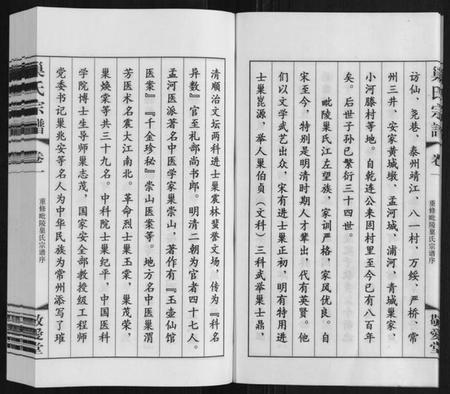 访仙、尧巷、泰州靖江、八一村、万绥、严桥、常
州三井、安家黄城墩、孟河城、浦河、青城巢家、
小河滕村等地。自乾连公来固村里至今已有八百年
矣。后世子孙已繁衍三十四世。
毗陵巢氏江左望族，家训严格，家风优良。自
宋至今，特别是明清时期人才辈出，代有英贤。他
们以文学武艺出众，宋有进士巢正初，明有特用进
士巢崑源，举人巢伯贞（文科）、三科武举巢士鼎，
巢氏宗谱
卷一
重修毗陵巢氏宗谱序
敬爱堂
清顺治文坛两科进士巢震林蜚誉文场，传为『科名
异数』官至礼部尚书郎。明清二朝为官者四十七人。
孟河医派著名中医学家巢崇山，著作有『玉壶仙馆
医案』『千金珍秘』『崇山医案等。地方名中医巢渭
芳医术名震大江南北。革命烈士巢玉棠，巢茂荣，
巢焕棠等共三十九名。中科院院士巢纪平，中国医科
学院博士生导师巢志茂，国家安全部教授级工程师
党委书记巢兆安等名人为中华民族为常州添写了璀
巢氏宗谱
卷一
重修毗陵巢氏宗谱序
敬爱堂